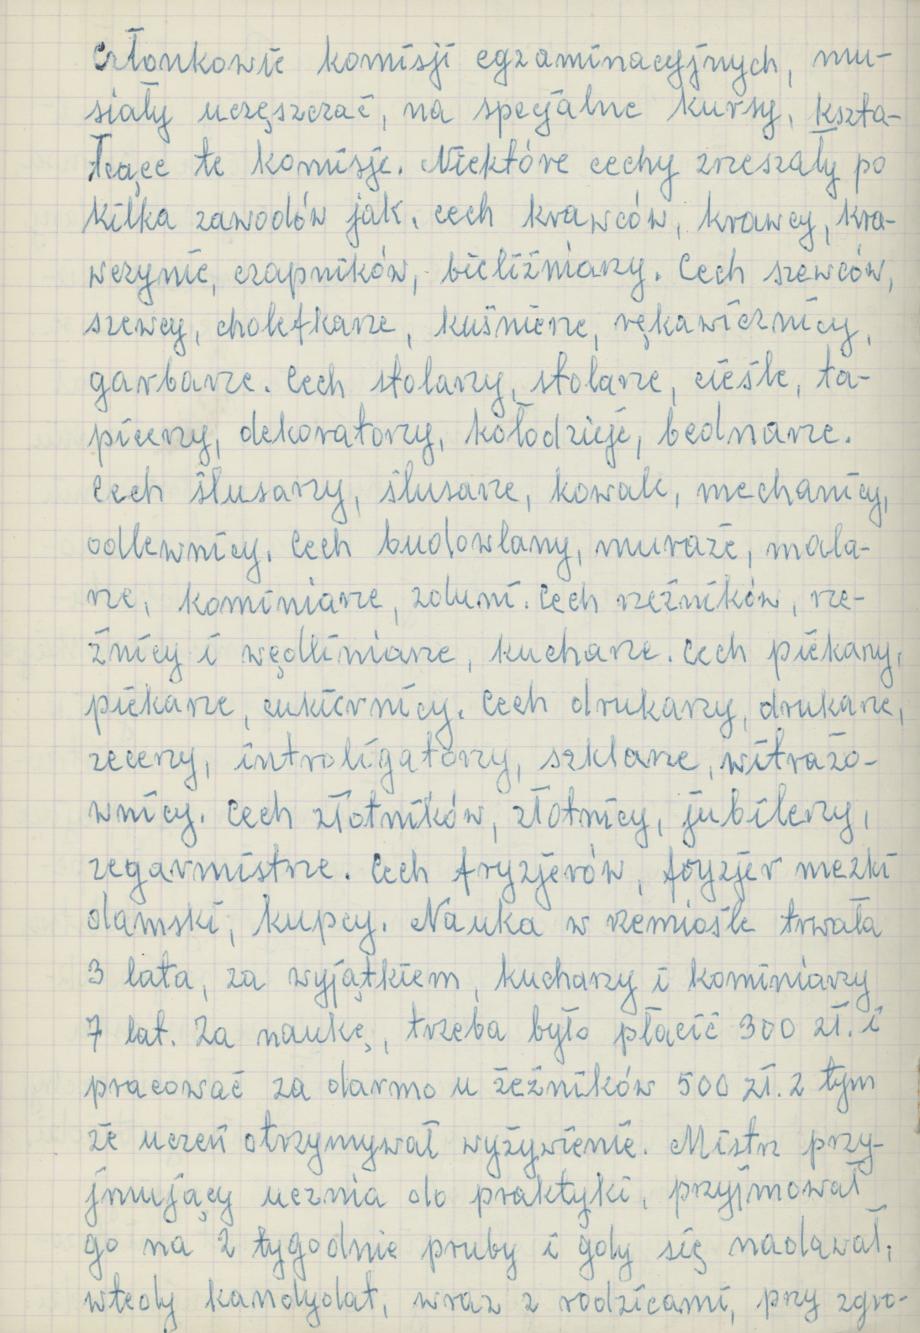 Członkowie komisji egzaminacyjnych, mu-
siały uczęszczać, na specjalne kursy, kszta-
łcące te komisje. Niektóre cechy zrzeszały po
kilka zawodów jak, cech krawców, krawcy, kra-
wczynie, czapników, bieliźniarzy. Cech szewców,
szewcy, cholefkarze, kuśnierze, rękawicznicy,
garbarze. Cech stolarzy, stolarze, cieśle, ta-
picerzy, dekoratorzy, kołodzieje, bednarze.
Cech ślusarzy, ślusarze, kowale, mechanicy,
odlewnicy. Cech budowlany, muraże, mala-
rze, kominiarze, zduni. Cech rzeźników, rze-
źnicy i wędliniarze, kucharze. Cech piekarzy,
piekarze, cukiernicy. Cech drukarzy, drukarze,
zecerzy, introligatorzy, szklarze, witrażo-
wnicy. Cech złotników, złotnicy, jubilerzy,
zegarmistrze. Cech fryzjerów, fryzjer mezki
damski, kupcy. Nauka w rzemiośle trwała
3 lata, za wyjątkiem, kucharzy i kominiarzy
7 lat. Za naukę, trzeba było płacić 300 zł. i
pracować za darmo u żeźników 500 zł. z tym
że uczeń otrzymywał wyżywienie. Mistrz przy-
jmujący ucznia do praktyki, przyjmował
go na 2 tygodnie pruby i gdy się nadawał,
wtedy kandydat, wraz z rodzicami, przy zgro-